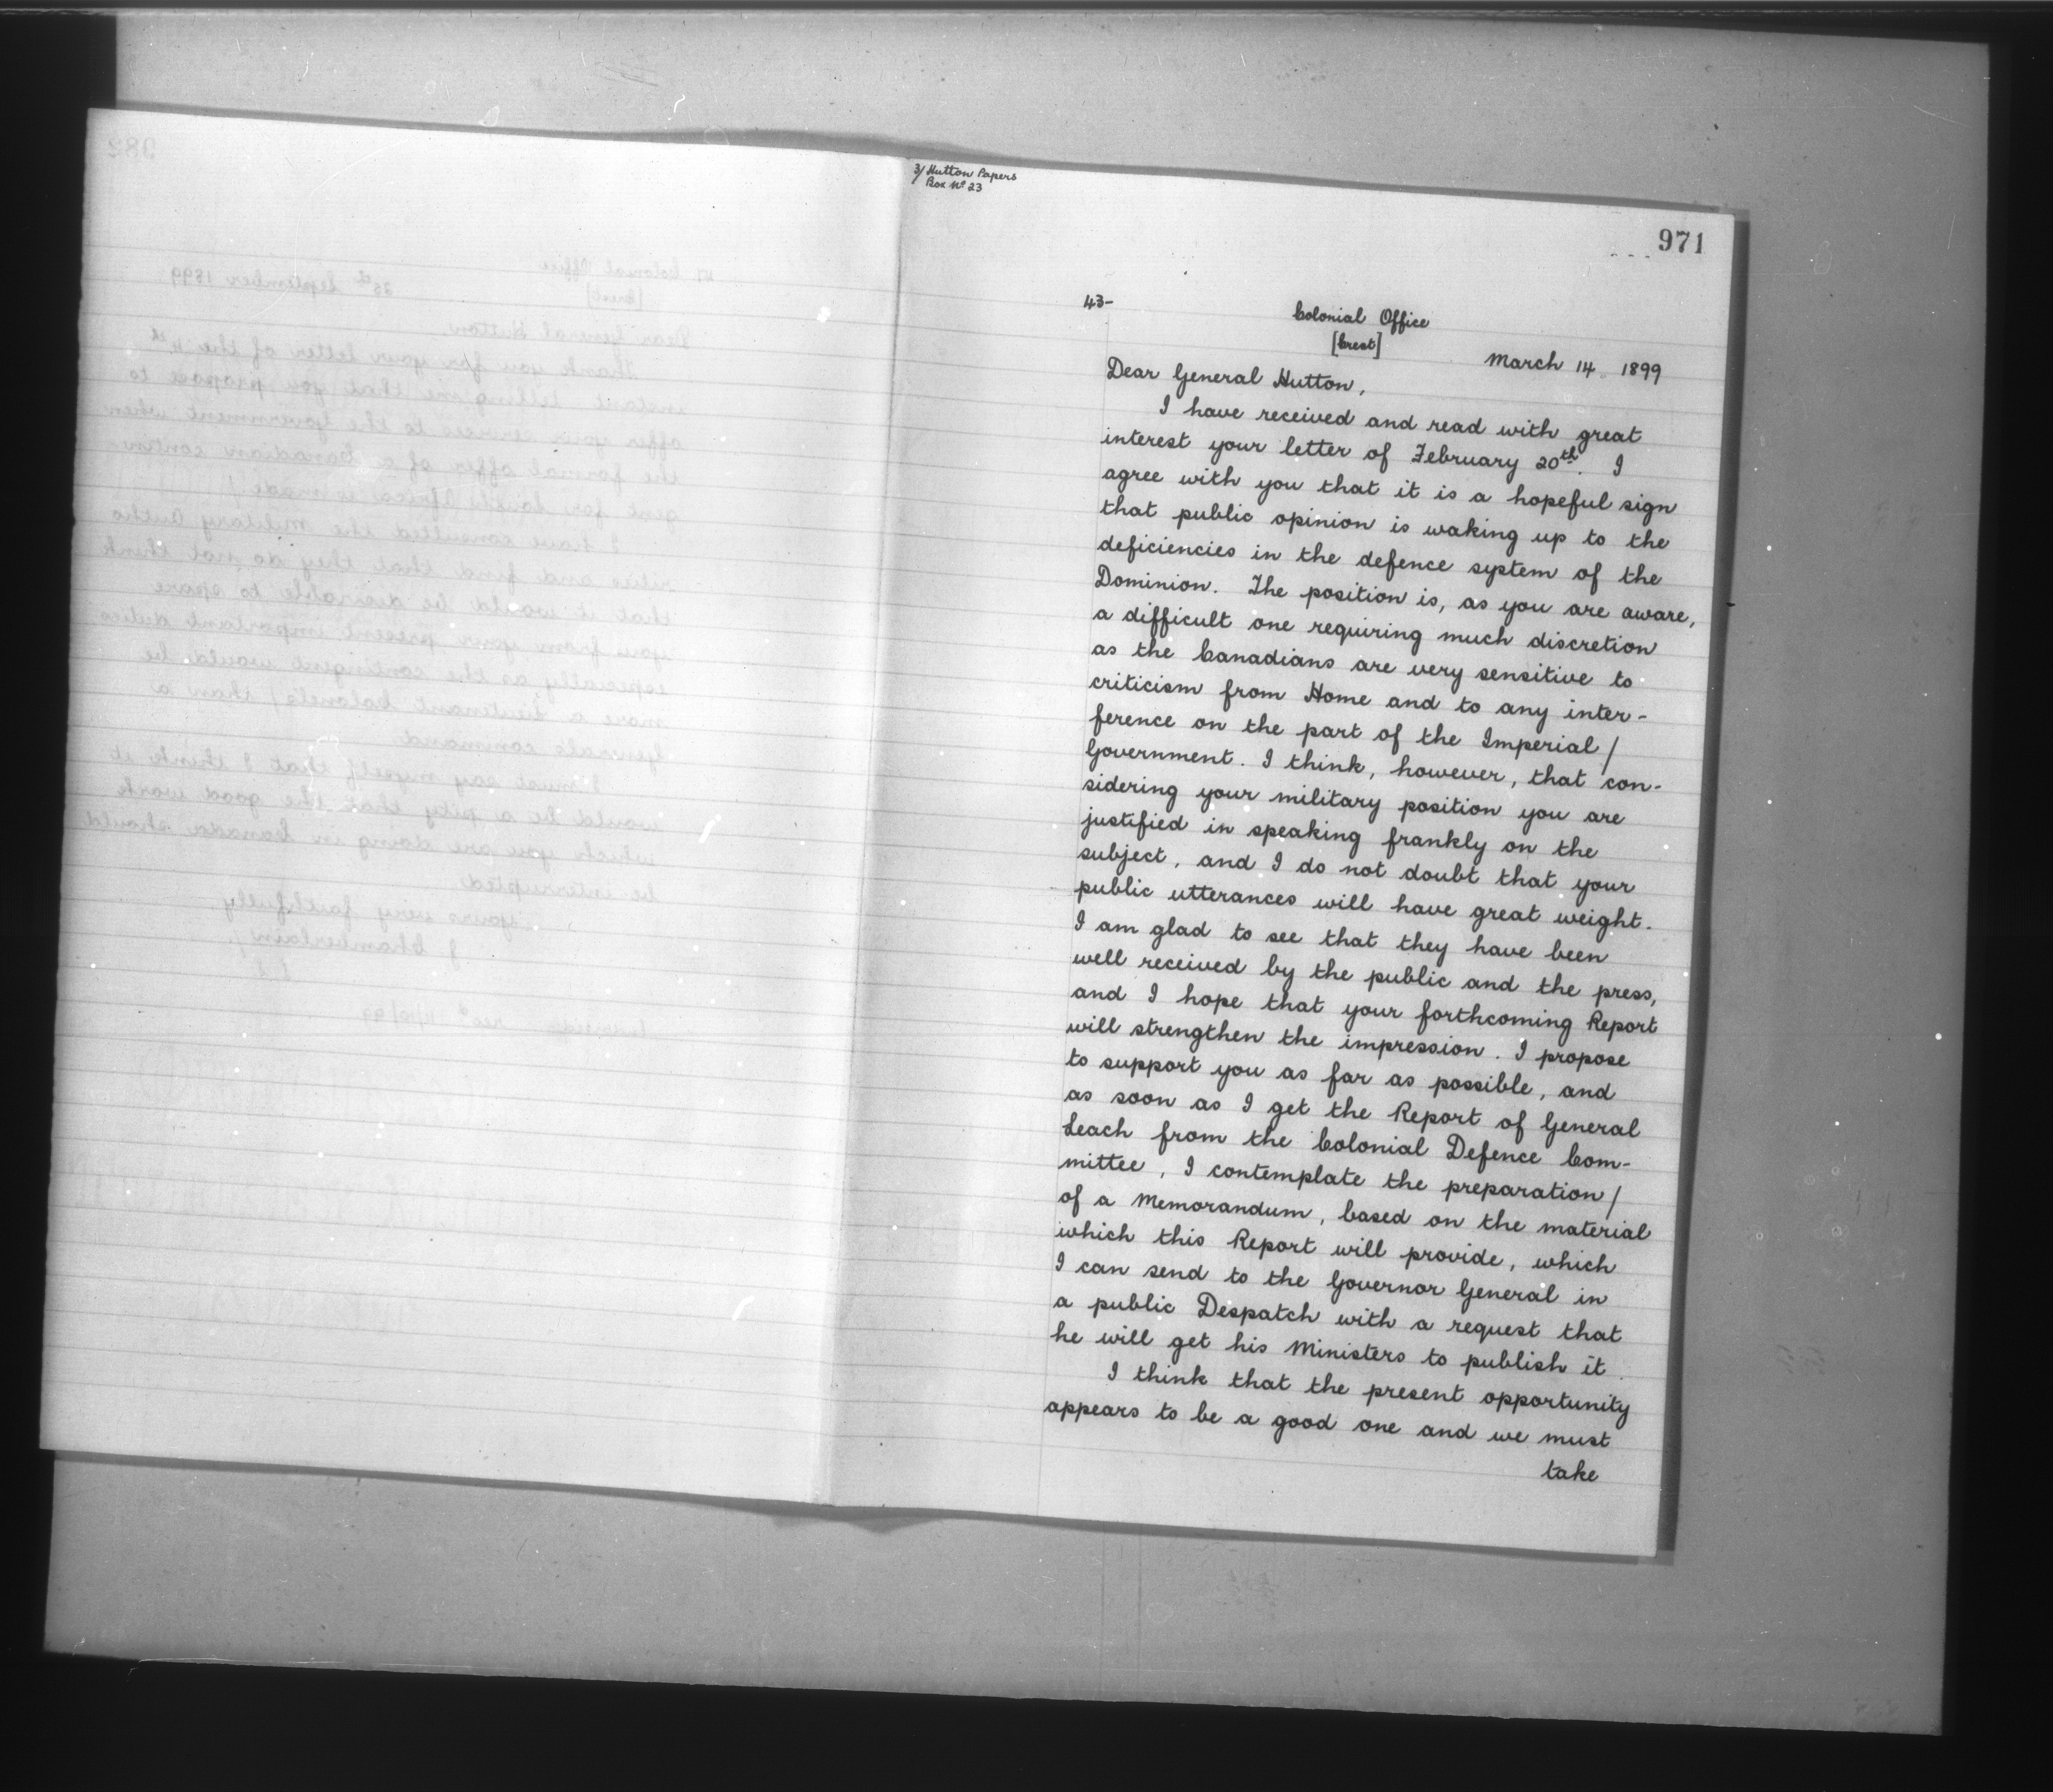 3/ Hutton Papers
Box Nº 23
971
43-
Colonial Office
[Crest]
March 14 1899
Dear General Hutton,
I have received and read with great
interest your letter of February 20th. I
agree with you that it is a hopeful sign
that public opinion is waking up to the
deficiencies in the defence system of the
Dominion. The position is, as you are aware,
a difficult one requiring much discretion
as the Canadians are very sensitive to
criticism from Home and to any inter-
ference on the part of the Imperial /
Government. I think, however, that con-
sidering your military position you are
justified in speaking frankly on the
subject, and I do not doubt that your
public utterances will have great weight.
I am glad to see that they have been
well received by the public and the press,
and I hope that your forthcoming Report
will strengthen the impression. I propose
to support you as far as possible, and
as soon as I get the Report of General
Leach from the Colonial Defence Com-
mittee, I contemplate the preparation /
of a Memorandum, based on the material
which this Report will provide, which
I can send to the Governor General in
a public Despatch with a request that
he will get his Ministers to publish it.
I think that the present opportunity
appears to be a good one and we must
take